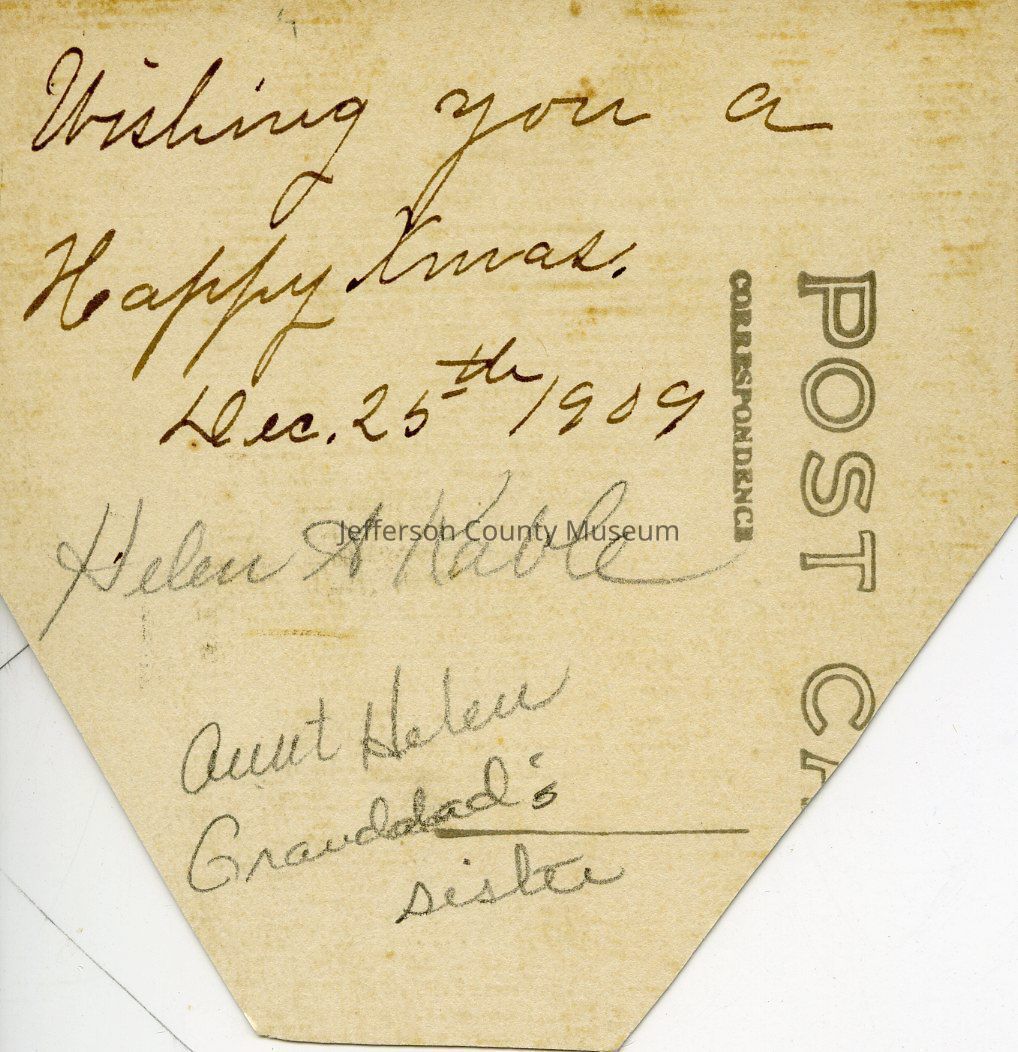 Wishing you a
Happy Xmas.
Dec. 25th 1909
Helen A Kable
Aunt Helen
Granddad's
sister
CORRESPONDENCE
POST CA
Jefferson County Museum